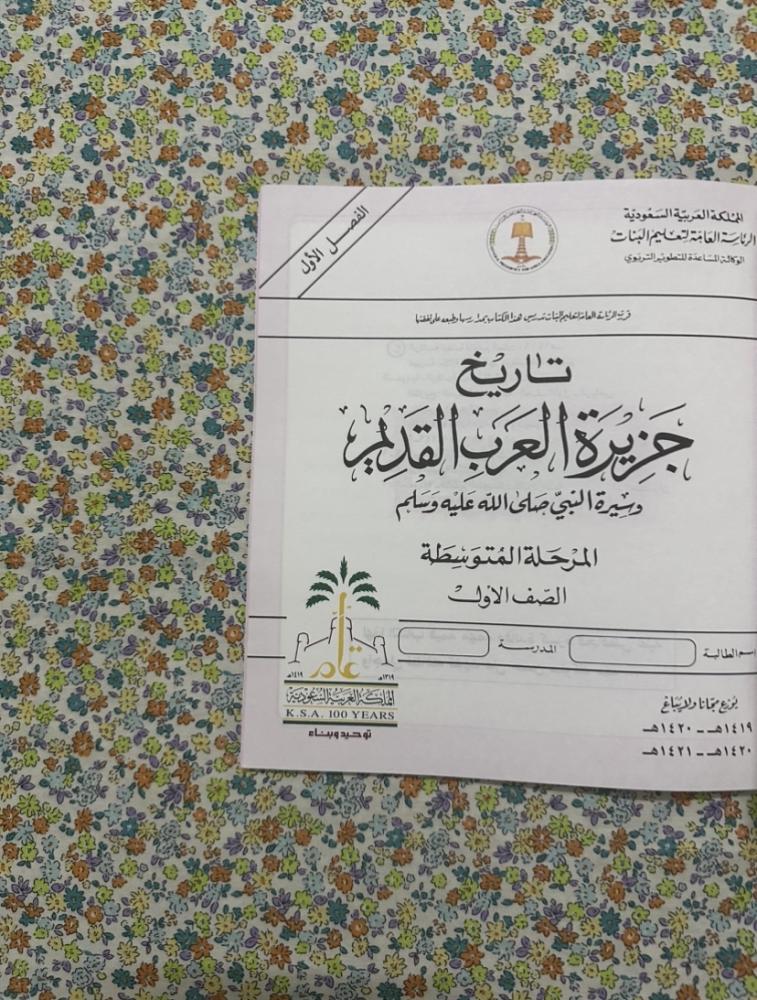 المملكة العربية السعودية
الرئاسة العامة لتعليم البنات
الوكالة المساعدة للتطوير التربوي
الفصل الأول
قررت الرئاسة العامة لتعليم البنات تدريس هذا الكتاب بمدارسها وطبعه على نفقتها
تاريخ
جزيرة العرب القديم
وسيرة النبي صلى الله عليه وسلم
المرحلة المتوسطة
الصف الأول
اسم الطالبة
المدرسة
يوزع مجانا ولا يباع
١٤١٩هـ - ١٤٢٠هـ
١٤٢٠هـ - ١٤٢١هـ
عام
١٣١٩هـ
١٤١٩هـ
المملكة العربية السعودية
K.S.A. 100 YEARS
توحيد وبناء